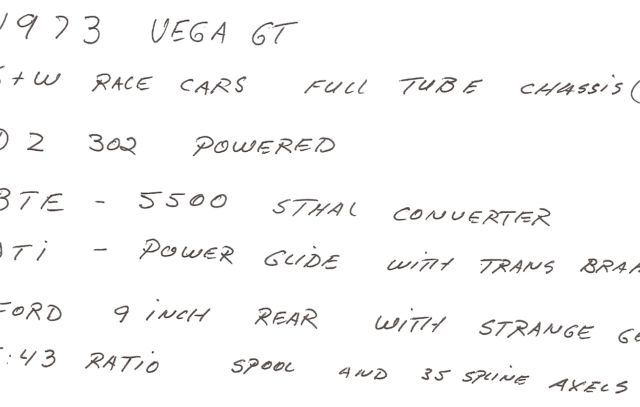 1973 VEGA GT
S+W RACE CARS FULL TUBE CHASSIS (
D Z 302 POWERED
BTE - 5500 STHAL CONVERTER
ATi - POWER GLIDE WITH TRANS
FORD 9 iNCH REAR WITH STRANGE
:43 RATiO SPOOL AND 35 SPLINE AXELS